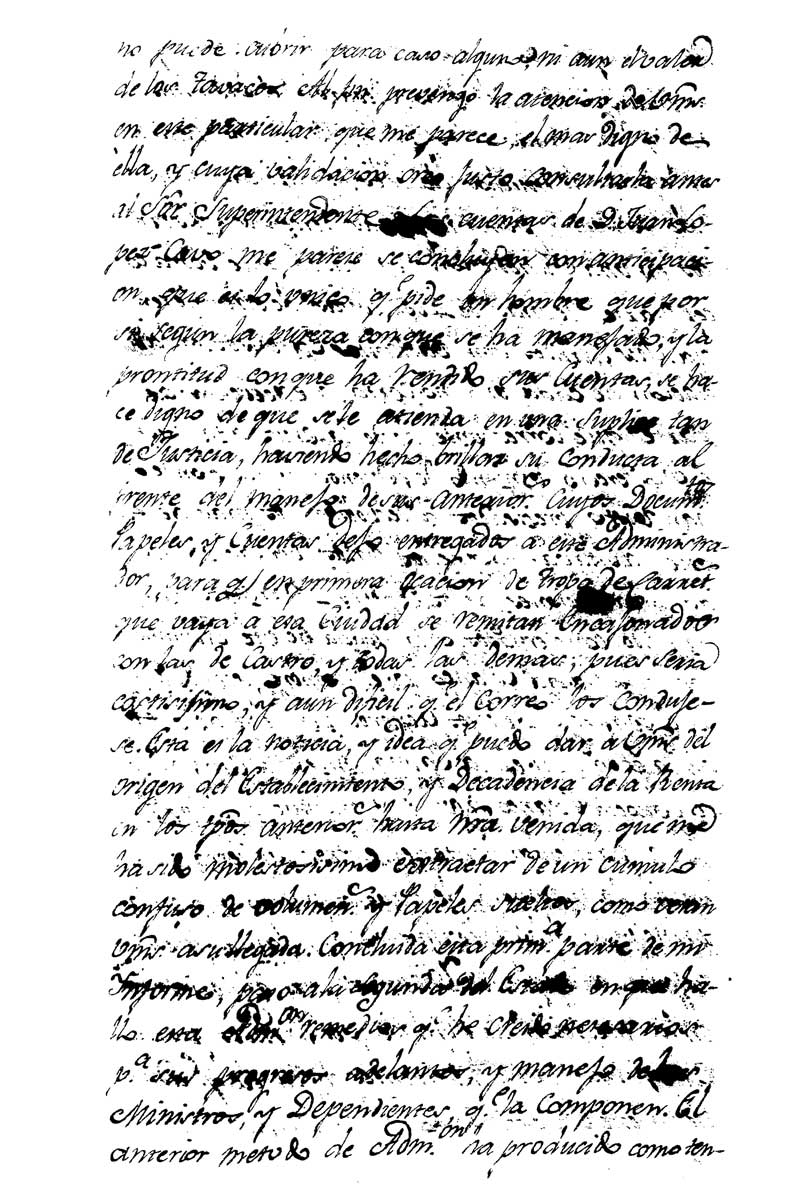 no puede cubrir para caso alguno, ni aun el valor
de los Tavacos. Al fin prevengo la atencion de Vms.
en este particular que me parece, el mas digno de
èlla, y cuya validacion creo justo consultarla antes
al Sõr. Superintendente las cuentas de D. Juan Lo-
pez Cavo me parece se concluyan con anticipaci-
on que es lo unico q.e pide un hombre que por
si segun la pureza con que se ha manejado, y la
prontitud con que ha rendido sus Cuentas, se ha-
ce digno de que se le atienda en una suplica tan
de Justicia, haviendo hecho brillar su conducta al
frente del manejo de sus anterior.s Cuyos Docum.tos
Papeles, y Cuentas dejo entregados a este Administra-
dor, para q.e en primera ocacion de tropa de Carret.s
que vaya à esa Ciudad se remitan Encajonados
con las de Castro, y todas las demas; pues seria
costosisimo, y aun dificil q.e el Correo los conduje-
se. Esta es la noticia, y idea q.e puedo dar à Vms. del
origen del Establecimiento, y Decadencia de la Renta
en los tpõs. anterior.s hasta ñra. venida, que me
ha sido molestosisimo extractar de un cumulo
confuso de volumen.s y Papeles sueltos, como veran
Vms. a su llegada. Concluida esta prim.a parte de mi
Informe, paso a la segunda del Estado en que ha-
llo esta remedios q.e he creido necesarios
p.a sus progresos adelantos, y manejo de los
Ministros, y Dependientes, q.e la Componen. El
anterior metodo de Adm.on ha producido como ten-